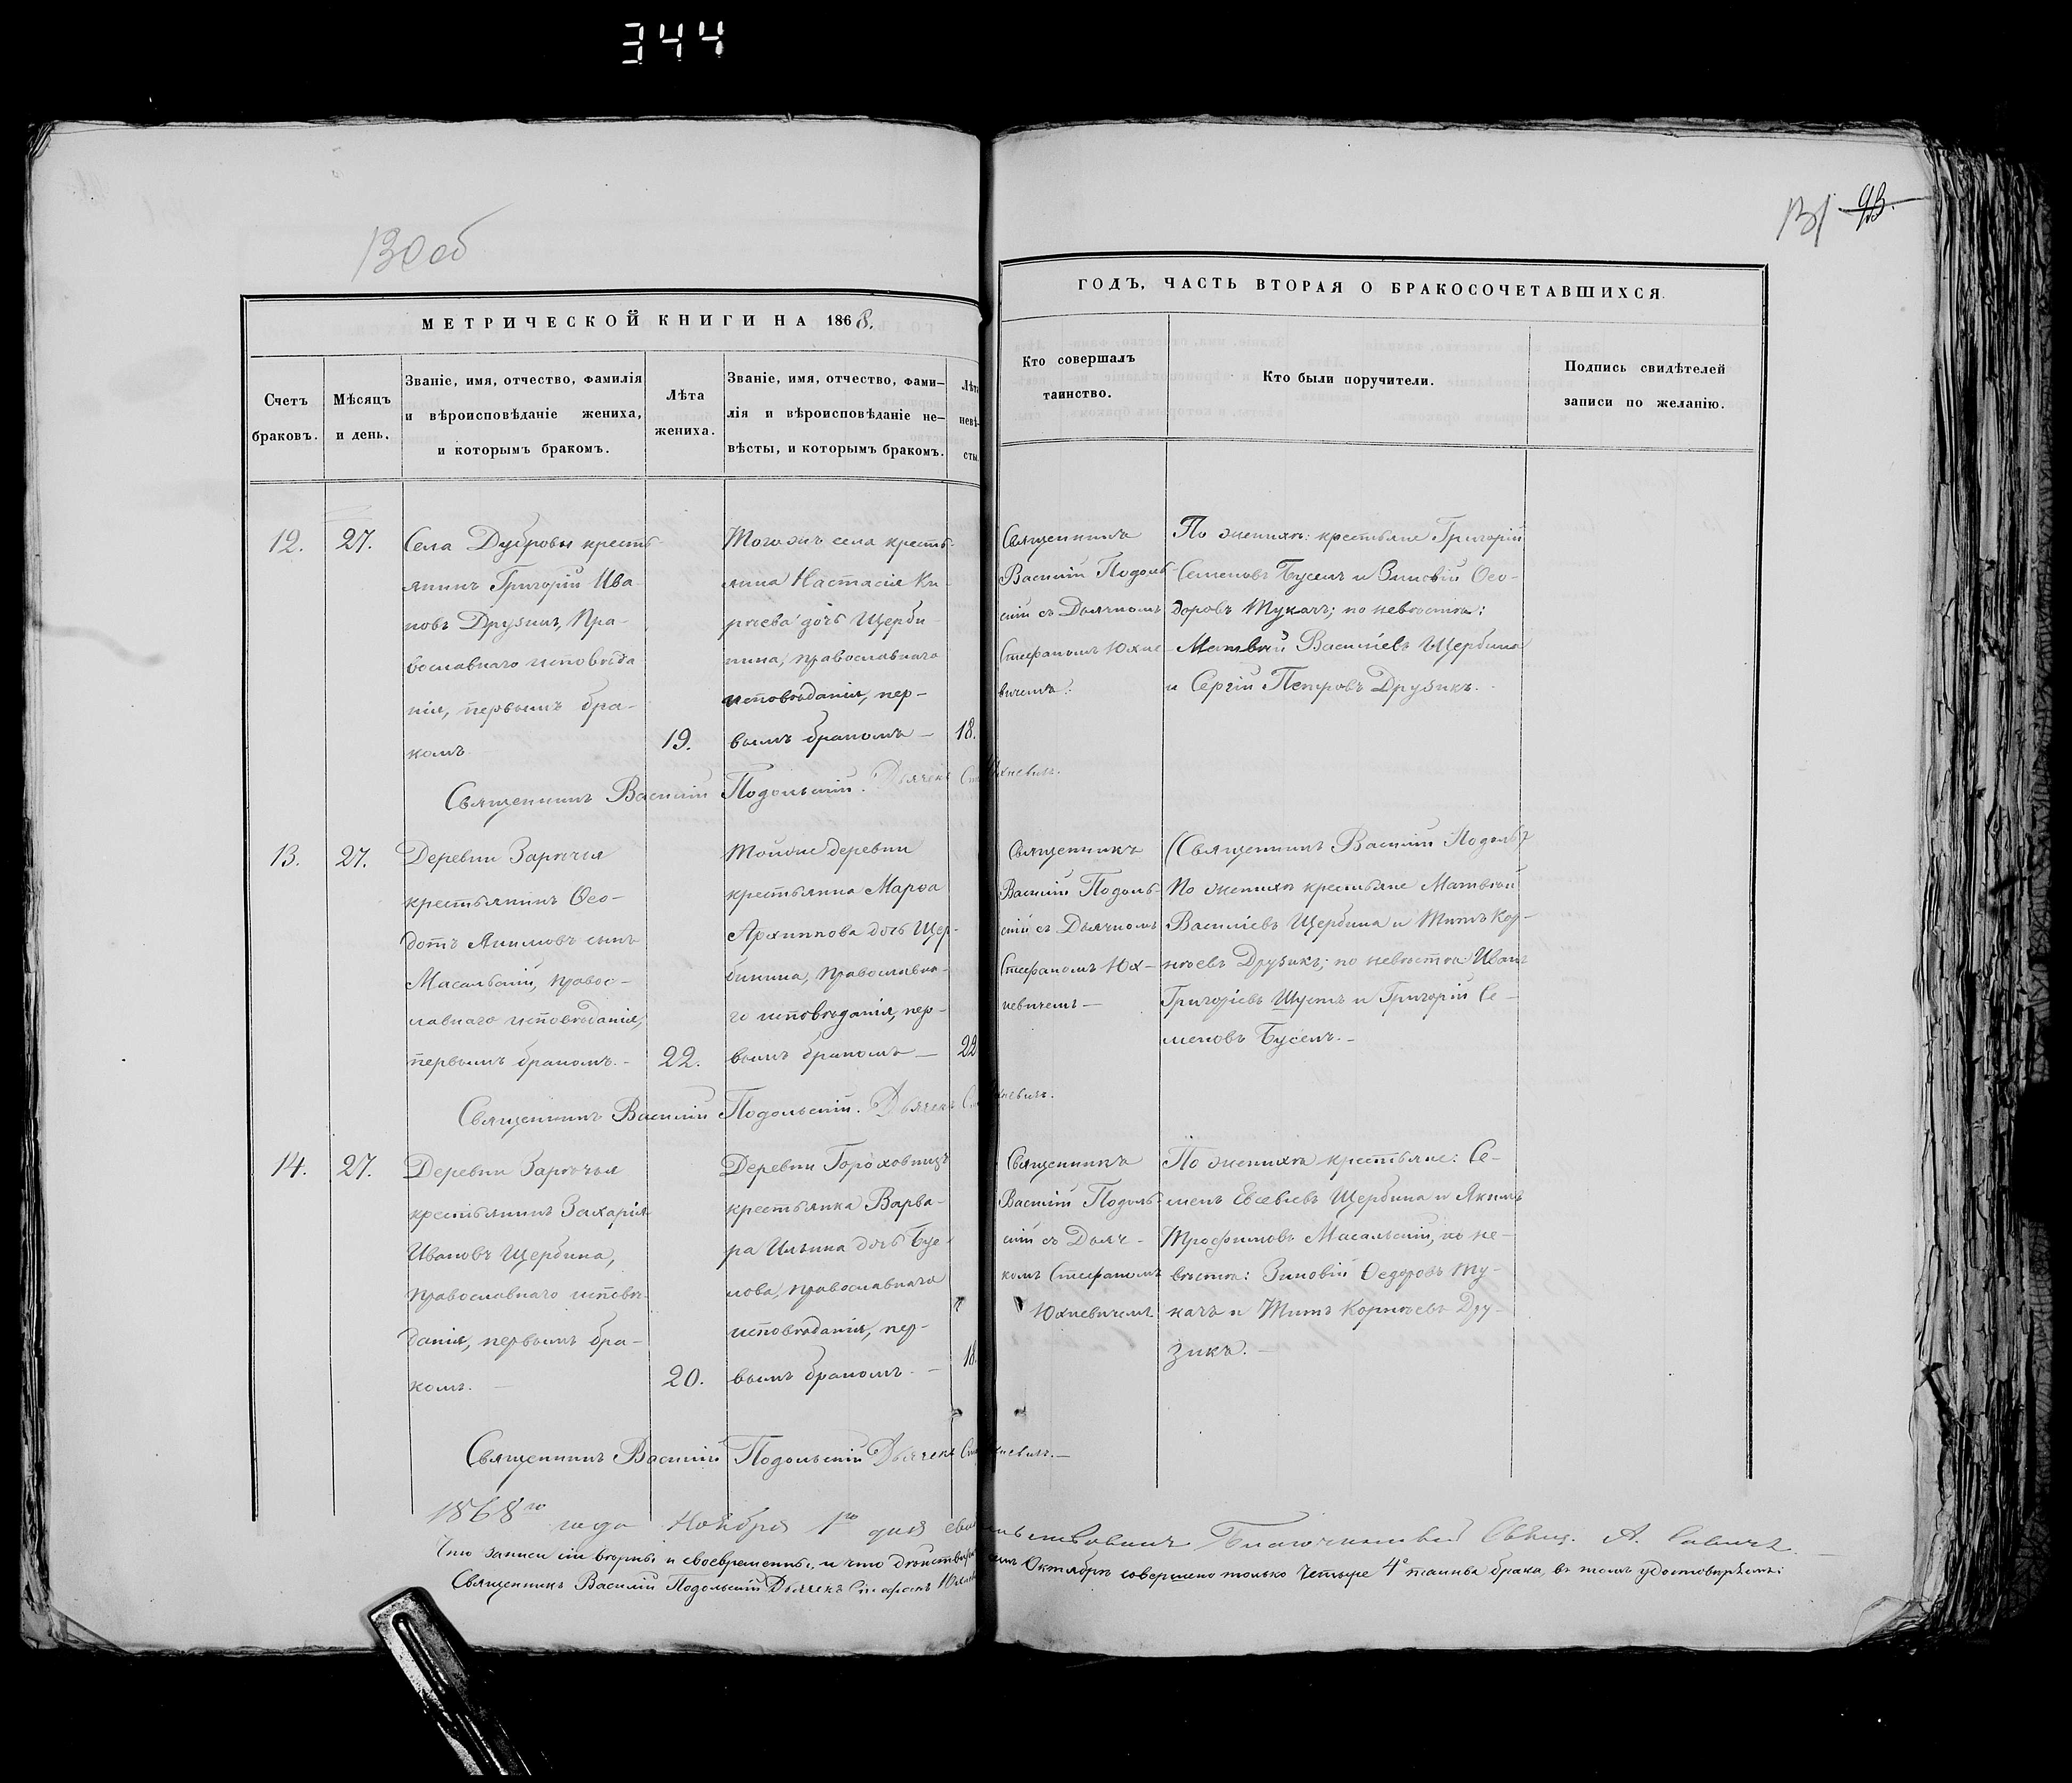 344
130 об
131 93.
МЕТРИЧЕСКОЙ КНИГИ НА 1868.
ГОДЪ, ЧАСТЬ ВТОРАЯ О БРАКОСОЧЕТАВШИХСЯ
Счетъ
браковъ.
Мѣсяцъ
и день.
Званіе, имя, отчество, фамилія
и вѣроисповѣданіе жениха,
и которымъ бракомъ.
Лѣта
жениха.
Званіе, имя, отчество, фами-
лія и вѣроисповѣданіе не-
вѣсты, и которымъ бракомъ.
Лѣта
невѣ-
сты
Кто совершалъ
таинство.
Кто были поручители.
Подпись свидѣтелей
записи по желанію.
12.
27.
Села Дубровы кресть-
янинъ Григорій Ива-
новъ Друзикъ, Пра-
вославнаго исповѣда
нія, первымъ бра-
комъ
19.
Тогожъ села кресть-
янка Настасія Ки-
рѣева дочь Щерби
нина, православнаго
исповѣданія, пер-
вымъ бракомъ —
18.
Священникъ
Василій Подоль-
скій съ Дьячкомъ
Стефаномъ Юхне-
вичемъ.
По женихѣ: крестьяне Григорій
Семеновъ Бусель и Зиновій Ѳео-
доровъ Тукачъ; по невѣстѣ:
Матвѣй Василіевъ Щербина
и Сергій Петровъ Друзикъ.
Священникъ Василій Подольскій. Дьячекъ Юхневичъ.
13.
27.
Деревни Зарѣчья
крестьянинъ Ѳео-
дотъ Якимовъ сынъ
Масальскій, правос-
лавнаго исповѣданія,
первымъ бракомъ. -
22.
Тойже деревни
крестьянка Марѳа
Архипова дочь Щер-
бинина, православна-
го исповѣданія, пер-
вымъ бракомъ —
22
Священникъ
Василій Подоль-
скій съ Дьячкомъ
Стефаномъ Юх-
невичемъ —
(Священникъ Василій Подоль)
По женихѣ крестьяне Матвѣй
Василіевъ Щербина и Титъ Кор-
нѣевъ Друзикъ; по невѣстѣ Иванъ
Григоріевъ Шустъ и Григорій Се-
меновъ Бусель. -
Священникъ Василій Подольскій. Дьячекъ Юхневичъ.
14.
27.
Деревни Зарѣчья
крестьянинъ Захарія
Ивановъ Щербина,
православнаго исповѣ-
данія, первымъ бра-
комъ. —
20.
Деревни Гороховищъ
крестьянка Варва-
ра Ильина дочь Бусе-
лова, православнаго
исповѣданія, пер-
вымъ бракомъ. —
18.
Священникъ
Василій Подоль-
скій съ Дьяч-
комъ Стефаномъ
Юхневичемъ
По женихѣ крестьяне: Се-
менъ Евсевіевъ Щербина и Якимъ
Трофимовъ Масальскій, по не-
вѣстѣ: Зиновій Ѳедоровъ Ту-
качъ и Титъ Корнѣевъ Дру-
зикъ. —
Священникъ Василій Подольскій Дьячекъ Юхневичъ. —
1868го года Ноября 1го дня свидѣтельствовалъ Благочинный Свящ. А. Савичъ
Что записи сіи вѣрны и своевременны, и что дѣйствительно въ семъ Октябрѣ совершено только четыре 4е таинства брака, въ томъ удостовѣряемъ:
Священникъ Василій Подольскій Дьячекъ Стефанъ Юхневичъ